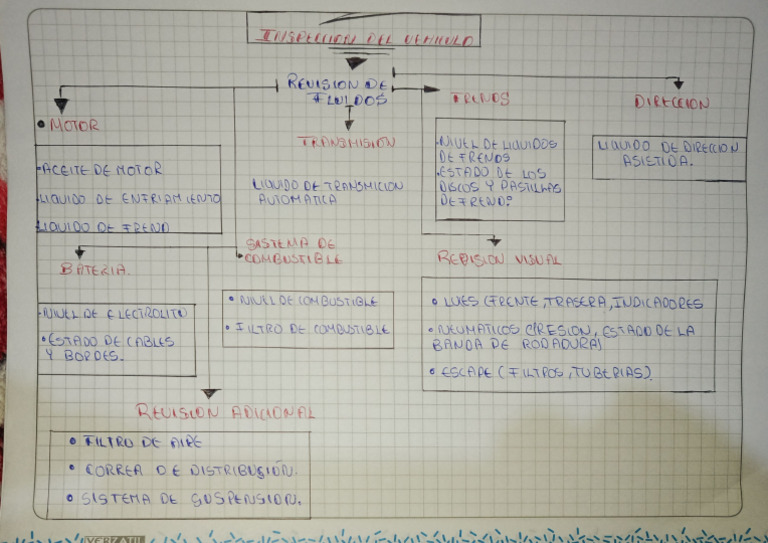 INSPECCION DEL VEHICULO
REVISION DE
FLUIDOS
FRENOS
DIRECCION
• MOTOR
TRANSMISIÓN
•ACEITE DE MOTOR
•LIQUIDO DE ENFRIAMIENTO
LIQUIDO DE FRENO
LIQUIDO DE TRANSMICION
AUTOMATICA
•NIVEL DE LIQUIDOS
DE FRENOS
•ESTADO DE LOS
DISCOS Y PASTILLAS
DE FRENO:
LIQUIDO DE DIRECCION
ASISTIDA.
BATERIA.
SISTEMA DE
COMBUSTIBLE
REBISION VISUAL
•NIVEL DE ELECTROLITO
•ESTADO DE CABLES
Y BORDES.
• NIVEL DE COMBUSTIBLE
• FILTRO DE COMBUSTIBLE
• LUES (FRENTE, TRASERA, INDICADORES
• NEUMATICOS (PRESION, ESTADO DE LA
BANDA DE RODADURA)
• ESCAPE (FILTROS, TUBERIAS).
REVISION ADICIONAL
• FILTRO DE AIRE
• CORREA DE DISTRIBUSIÓN.
• SISTEMA DE SUSPENSION.
VERZATIL